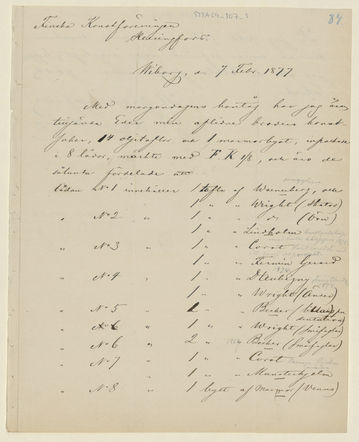 84
Finska Konstföreningen
Helsingfors.
Wiborg, den 7 Febr. 1877
Med morgondagens bantåg har jag äran
tillsända Eder min aflidne broders konst
saker, 14 oljetaflor och 1 marmorbyst, inpackade
i 8 lådor, märkta med F K 1/8, och äro de
sålunda fördelade
Lådan No 1 innehåller 1 tafla af Wennberg, och
1 " " Wright (
" No 2 " 1 " " do (Örn)
1 " " Lindholm
" No 3 " 1 " " Corot
1 " " Firmin Girard
" No 4 " 1 " " D'Aubigny
1 " " Wright (
" No 5 " 1 " " Becker (
" 1 " " Wright (
" No 6 " 2 " " Becker (
" No 7 " 1 " " Corot
1 " " Munsterhjelm
" No 8 " 1 byst af Marmor (Venus)